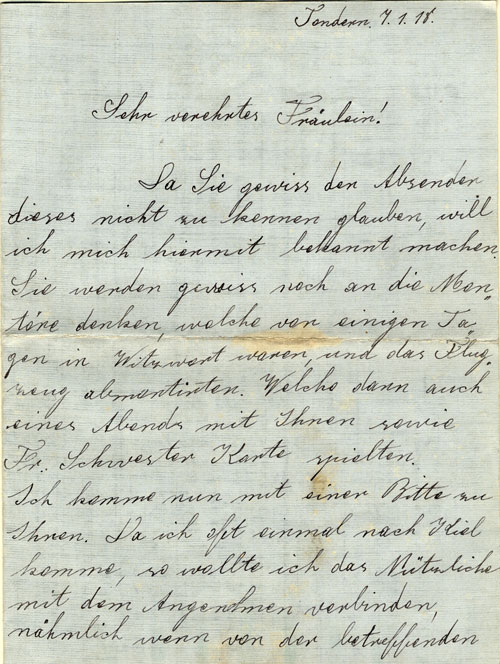 Tondern, 7.1.18.
Sehr verehrtes Fräulein!
Da Sie gewiss den Absender
dieses nicht zu kennen glauben, will
ich mich hiermit bekannt machen.
Sie werden gewiss noch an die Mon„
töre denken, welche vor einigen Ta„
gen in Witzwort waren, und das Flug„
zeug abmontirten. Welche dann auch
eines Abends mit Ihnen sowie
Fr. Schwester Karte spielten.
Ich komme nun mit einer Bitte zu
Ihnen. Da ich oft einmal nach Kiel
komme, so wollte ich das Nützliche
mit dem Angenehmen verbinden,
nähmlich wenn von der betreffenden